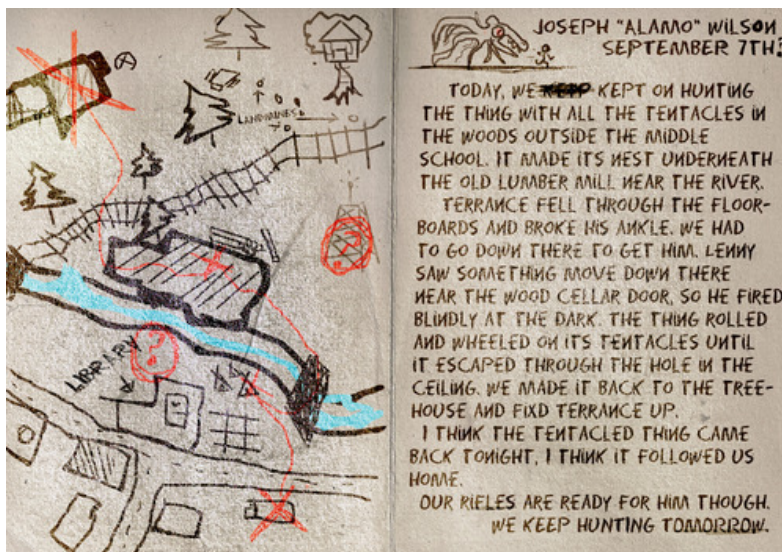 LANDMINES
LIBRARY
JOSEPH "ALAMO" WILSON
SEPTEMBER 7TH
TODAY, WE KEPT ON HUNTING
THE THING WITH ALL THE TENTACLES IN
THE WOODS OUTSIDE THE MIDDLE
SCHOOL. IT MADE ITS NEST UNDERNEATH
THE OLD LUMBER MILL NEAR THE RIVER.
TERRANCE FELL THROUGH THE FLOOR-
BOARDS AND BROKE HIS ANKLE. WE HAD
TO GO DOWN THERE TO GET HIM. LENNY
SAW SOMETHING MOVE DOWN THERE
NEAR THE WOOD CELLAR DOOR, SO HE FIRED
BLINDLY AT THE DARK. THE THING ROLLED
AND WHEELED ON ITS TENTACLES UNTIL
IT ESCAPED THROUGH THE HOLE IN THE
CEILING. WE MADE IT BACK TO THE TREE-
HOUSE AND FIXD TERRANCE UP.
I THINK THE TENTACLED THING CAME
BACK TONIGHT, I THINK IT FOLLOWED US
HOME.
OUR RIFLES ARE READY FOR HIM THOUGH.
WE KEEP HUNTING TOMORROW.